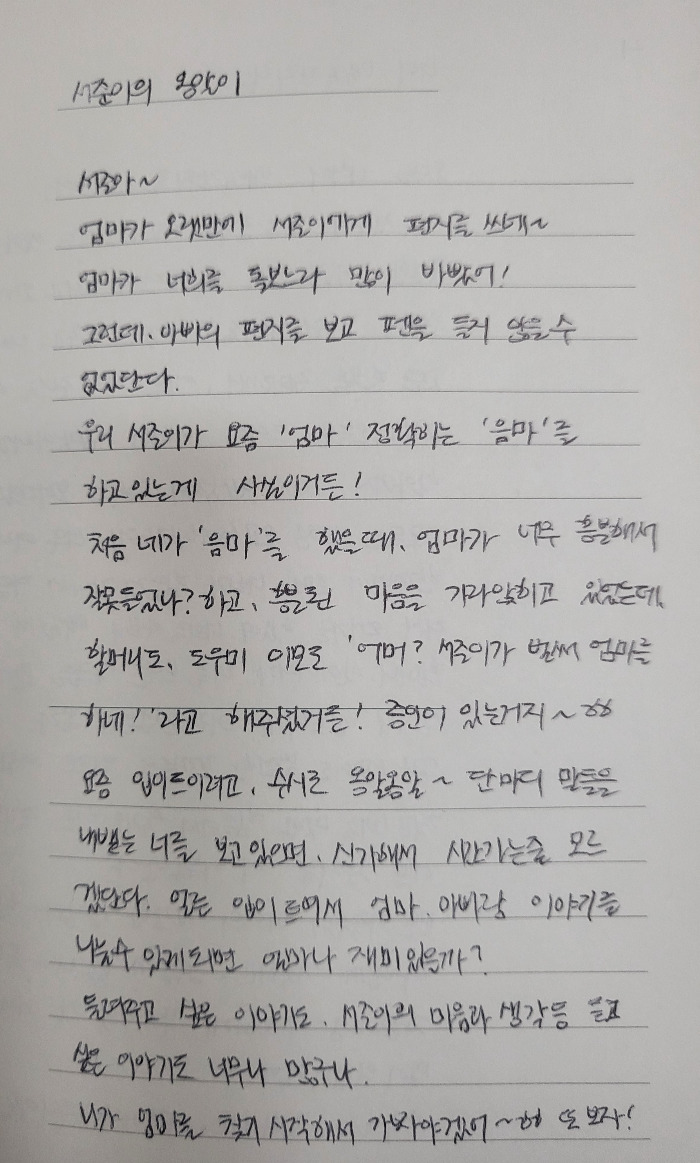 서준이의 옹알이
서준아~
엄마가 오랫만에 서준이에게 편지를 쓰네~
엄마가 너희를 돌보느라 많이 바빴어!
그런데, 아빠의 편지를 보고 펜을 들지 않을 수
없었단다.
우리 서준이가 요즘 '엄마' 정확히는 '음마'를
하고있는게 사실이거든!
처음 네가 '음마'를 했을때, 엄마가 너무 흥분해서
잘못들었나? 하고, 흥분된 마음을 가라앉히고 있었는데,
할머니도, 도우미 이모도 '어머? 서준이가 벌써 엄마를
하네!'라고 해주셨거든! 증인이 있는거지~ㅎㅎ
요즘 입이트이려고, 수시로 옹알옹알~ 단마디 말들을
내뱉는 너를 보고있으면, 신기해서 시간가는줄 모르
겠단다. 얼른 입이 트여서 엄마, 아빠랑 이야기를
나눌수 있게되면 얼마나 재미있을까?
들려주고 싶은 이야기도, 서준이의 마음과 생각등 듣고
싶은 이야기도 너무나 많구나.
니가 엄마를 찾기 시작해서 가봐야겠어~ㅎㅎ 또 보자!